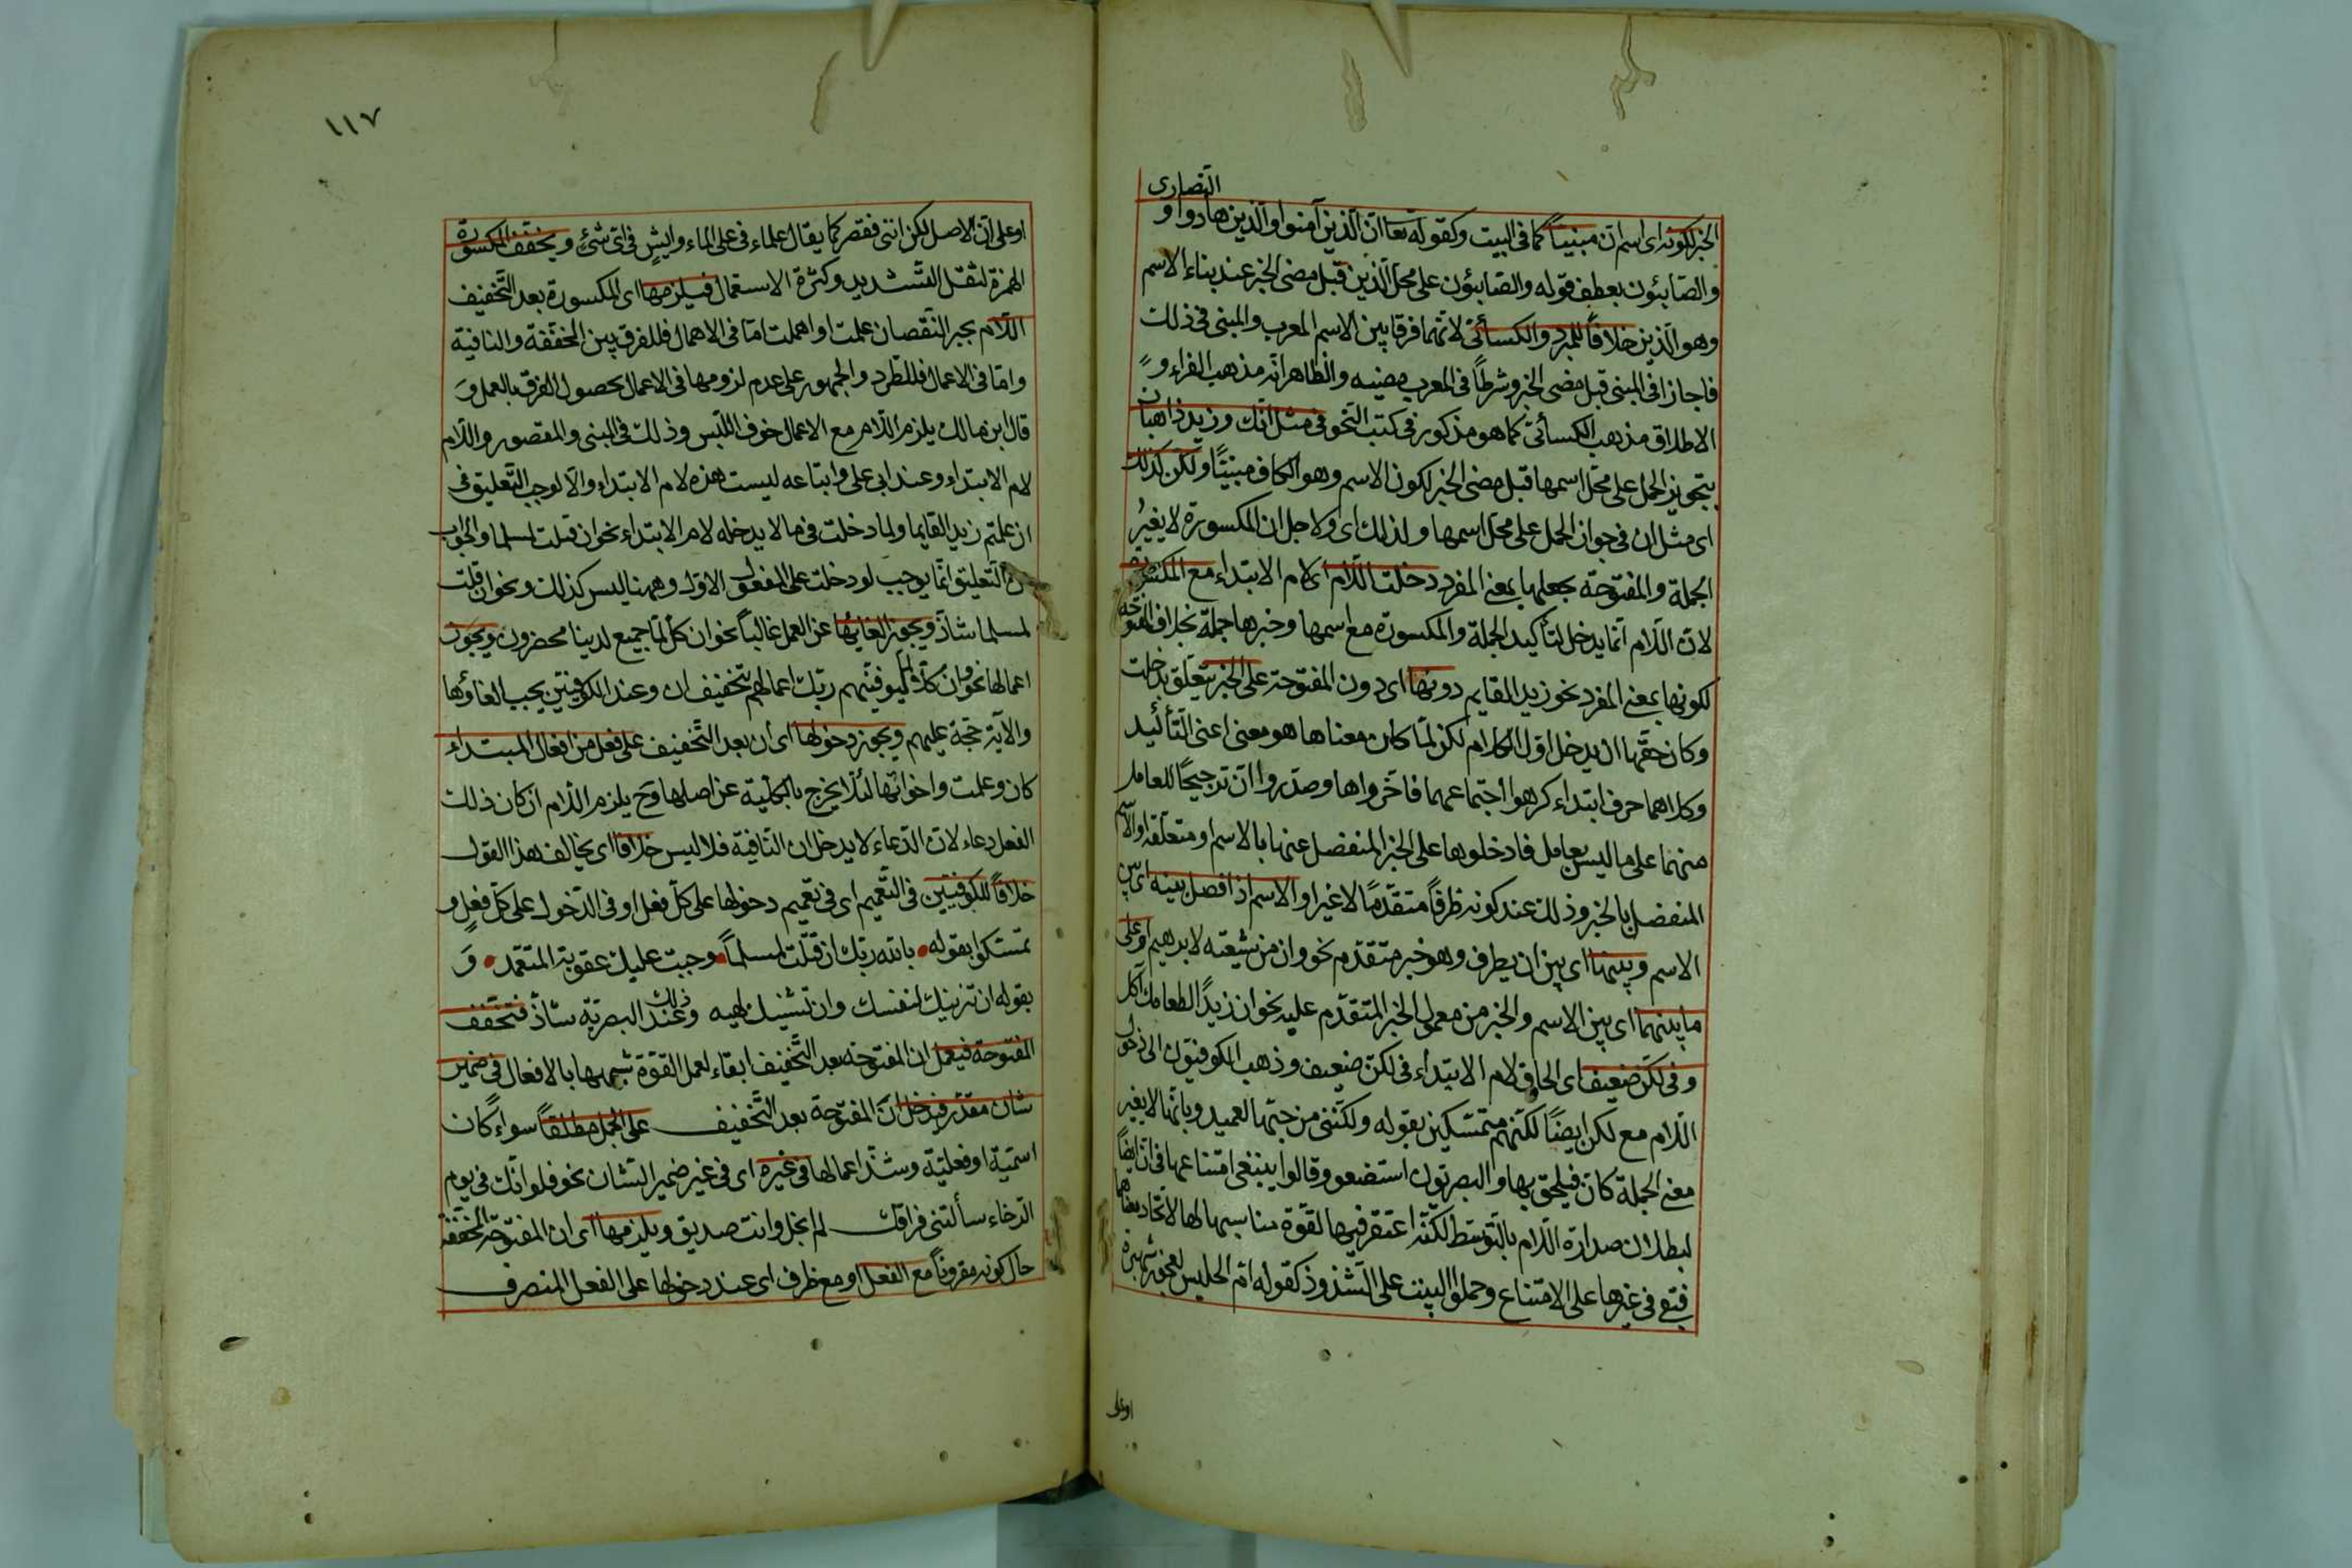 النصارى
الخبر لكونه اى اسم ان مبنيا كما فى البيت وكقوله تعا ان الذين آمنوا والذين هادوا و
والصابئون بعطف قوله والصابئون على محل الذين قبل مضى الخبر عند بناء الاسم
وهو الذين خلافاً للمبرد والكسائى لانهما فرقا بين الاسم المعرب والمبنى فى ذلك
فاجازا فى المبنى قبل مضى الخبر وشرطاً فى المعرب مضيه والظاهر انه مذهب الفراء و
الاطلاق مذهب الكسائى كما هو مذكور فى كتب النحو فى مثل انك وزيد ذاهبان
بتجويز الحمل على محل اسمها قبل مضى الخبر لكون الاسم وهو الكاف مبنيًا ولكن كذلك
اى مثل ان فى جواز الحمل على محل اسمها ولذلك اى ولاجل ان المكسورة لا يغير
الجملة والمفتوحة بجعلها بمعنى المفرد دخلت اللام اى لام الابتداء مع المكسورة
لان اللام انما يدخل لتأكيد الجملة والمكسورة مع اسمها وخبرها جملة بخلاف المفتوحة
لكونها بمعنى المفرد نحو زيد القايم دونها اى دون المفتوحة على الخبر يتعلق بدخلت
وكان حقها ان يدخل اول الكلام لكن لما كان معناها هو معنى اعنى التأكيد
وكلاهما حرف ابتداء كرهوا اجتماعهما فاخرواها وصدروا ان ترجيحًا للعامل
منهما على ما ليس بعامل فادخلوها على الخبر المنفصل عنها بالاسم او متعلقه او الاسم
المنفصل بالخبر وذلك عند كونه ظرفاً متقدمًا لا غير او الاسم اذا فصل بينه اى بين
الاسم وبينها اى بين ان بظرف وهو خبر متقدم نحو وان من شيعته لابرهيم او على
ما بينهما اى بين الاسم والخبر من معمول الخبر المتقدم عليه نحو ان زيدًا لطعامك آكل
وفى لكن ضعيف اى الحاق لام الابتداء فى لكن ضعيف وذهب الكوفيون الى دخول
اللام مع لكن ايضًا لكنهم متمسكين بقوله ولكننى من حبها لعميد وبانها لا يغير
معنى الجملة كان فيلحق بها والبصريون استضعفو وقالوا ينبغى امتناعها فى ان ايضاً
لبطلان صدارة اللام بالتوسط لكنه اغتفر فيها لقوة مناسبتها لها لاتحاد معناهما
فبقى فى غيرها على الامتناع وحملوا البيت على الشذوذ كقوله ام الحليس لعجوز شهبرة
اوعلى
١١٧
اوعلى ان الاصل لكن اننى فقصر كما يقال علماء فى على الماء وايش فى اى شئ ويخفف المكسورة
الهمزة لثقل التشديد وكثرة الاستعمال فيلزمها اى المكسورة بعد التخفيف
اللام بجبر النقصان عملت او اهملت اما فى الاهمال فللفرق بين المخففة والنافية
واما فى الاعمال فللطرد والجمهور على عدم لزومها فى الاعمال لحصول الفرق بالعمل و
قال ابن مالك يلزم اللام مع الاعمال خوف اللبس وذلك فى المبنى والمقصور واللام
لام الابتداء وعند ابى على واتباعه ليست هذه لام الابتداء والا لوجب التعليق فى
ان علمتم زيد القايما ولما دخلت فى ما لا يدخله لام الابتداء نحو ان قتلت لمسلما والجواب
التعليق انما يوجب لو دخلت على المفعول الاول وههنا ليس كذلك ونحو ان قتلت
لمسلما شاذ ويجوز الغايها عن العمل غالباً نحو ان كل لما جميع لدينا محضرون ويجوز
اعمالها نحو وان كلا لما ليوفينهم ربك اعمالهم بتخفيف ان وعند الكوفيين يجب الغاؤها
والآية حجة عليهم ويجوز دخولها اى ان بعد التخفيف على فعل من افعال المبتداء
كان وعلمت واخواتها لئلا يخرج بالكلية عن اصلها وح يلزم اللام ان كان ذلك
الفعل دعاء لان الدعاء لا يدخل ان النافية فلا لبس خلافا اى يخالف هذا القول
خلافاً للكوفيين فى التعميم اى فى تعميم دخولها على كل فعل او فى الدخول على كل فعل و
تمسكوا بقوله بالله ربك ان قتلت لمسلماً وجبت عليك عقوبة المتعمد و
بقوله ان تزينك لنفسك وان تشينك لهيه وذلك عند البصرية شاذ فتخفف
المفتوحة فيعمل ان المفتوحة بعد التخفيف ابقاء لعمل القوة شبهها بالافعال فى ضمير
شان مقدر فيدخل ان المفتوحة بعد التخفيف على الجمل مطلقاً سواء كان
اسمية او فعلية وشذ اعمالها فى غيره اى فى غير ضمير الشان نحو فلو انك فى يوم
الرخاء سألتنى فراقك لم ابخل وانت صديق ويلزمها اى ان المفتوحة المخففة
حال كونه مقروناً مع الفعل او مع ظرف اى عند دخولها على الفعل المتصرف